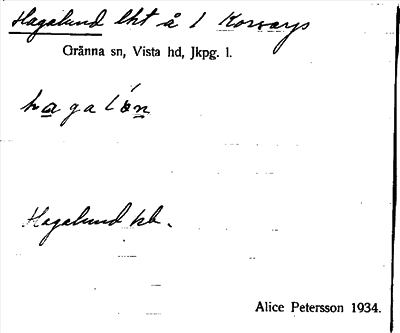 Hagalund lht å 1 Korsarps
Gränna sn, Vista hd, Jkpg. l.
Hagalund kb.
Alice Petersson 1934.